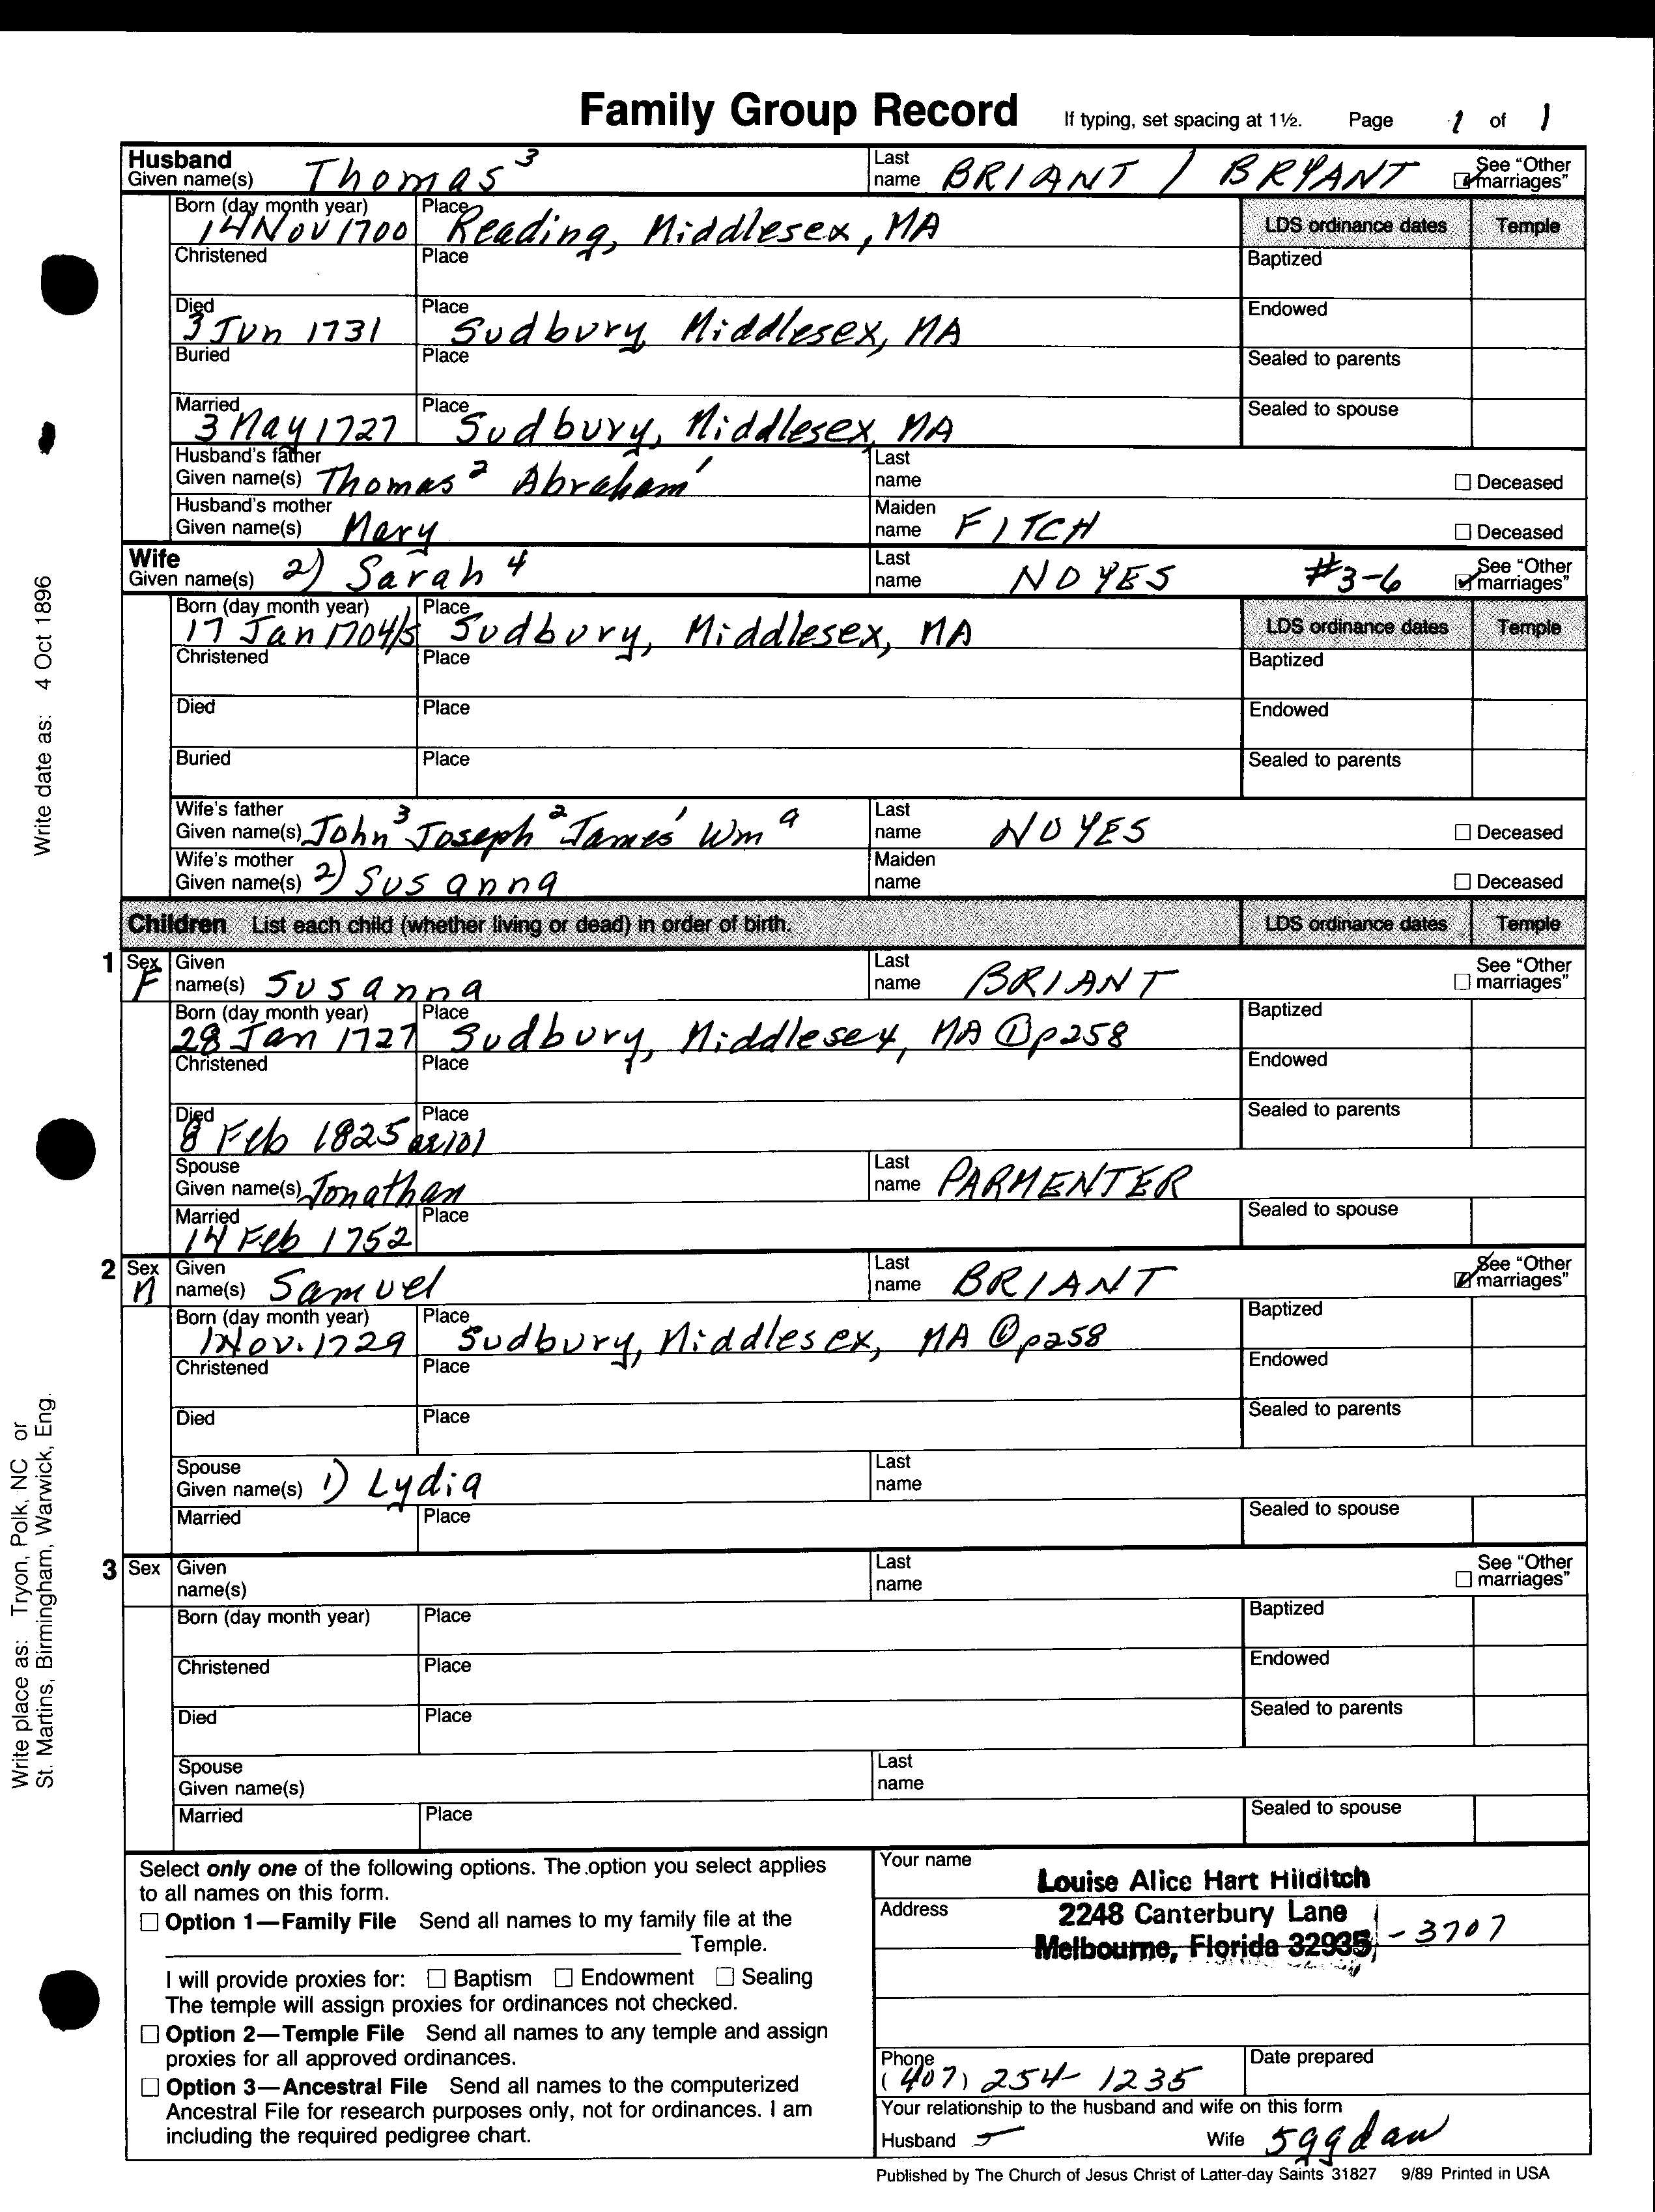 Family Group Record If typing, set spacing at 1½. Page 1 of 1
Husband
Given name(s) Thomas³ Last name BRIANT / BRYANT See "Other marriages"
Born (day month year) 14 Nov 1700 Place Reading, Middlesex, MA LDS ordinance dates Temple
Christened Place Baptized
Died 3 Jun 1731 Place Sudbury Middlesex, MA Endowed
Buried Place Sealed to parents
Married 3 May 1727 Place Sudbury, Middlesex, MA Sealed to spouse
Husband's father
Given name(s) Thomas² Abraham¹ Last name Deceased
Husband's mother
Given name(s) Mary Maiden name FITCH Deceased
Wife
Given name(s) 2) Sarah⁴ Last name NOYES #3-6 See "Other marriages"
Born (day month year) 17 Jan 1704/5 Place Sudbury, Middlesex, MA LDS ordinance dates Temple
Christened Place Baptized
Died Place Endowed
Buried Place Sealed to parents
Wife's father
Given name(s) John³ Joseph² James¹ Wm ᵃ Last name NOYES Deceased
Wife's mother
Given name(s) 2) Susanna Maiden name Deceased
Children List each child (whether living or dead) in order of birth. LDS ordinance dates Temple
1 Sex F Given name(s) Susanna Last name BRIANT See "Other marriages"
Born (day month year) 28 Jan 1727 Place Sudbury, Middlesex, MA ① p258 Baptized
Christened Place Endowed
Died 8 Feb 1825 Place Sealed to parents
Spouse
Given name(s) Jonathan Last name PARMENTER
Married 14 Feb 1752 Place Sealed to spouse
2 Sex M Given name(s) Samuel Last name BRIANT See "Other marriages"
Born (day month year) 1 Nov. 1729 Place Sudbury, Middlesex, MA ① p258 Baptized
Christened Place Endowed
Died Place Sealed to parents
Spouse
Given name(s) 1) Lydia Last name
Married Place Sealed to spouse
3 Sex Given name(s) Last name See "Other marriages"
Born (day month year) Place Baptized
Christened Place Endowed
Died Place Sealed to parents
Spouse
Given name(s) Last name
Married Place Sealed to spouse
Select only one of the following options. The option you select applies
to all names on this form.
Option 1—Family File Send all names to my family file at the
Temple.
I will provide proxies for: Baptism Endowment Sealing
The temple will assign proxies for ordinances not checked.
Option 2—Temple File Send all names to any temple and assign
proxies for all approved ordinances.
Option 3—Ancestral File Send all names to the computerized
Ancestral File for research purposes only, not for ordinances. I am
including the required pedigree chart.
Your name Louise Alice Hart Hilditch
Address 2248 Canterbury Lane
Melbourne, Florida 32935 - 3707
Phone (407) 254-1235 Date prepared
Your relationship to the husband and wife on this form
Husband Wife 5ggdau
Published by The Church of Jesus Christ of Latter-day Saints 31827 9/89 Printed in USA
Write date as: 4 Oct 1896
Write place as: Tryon, Polk, NC or
St. Martins, Birmingham, Warwick, Eng.